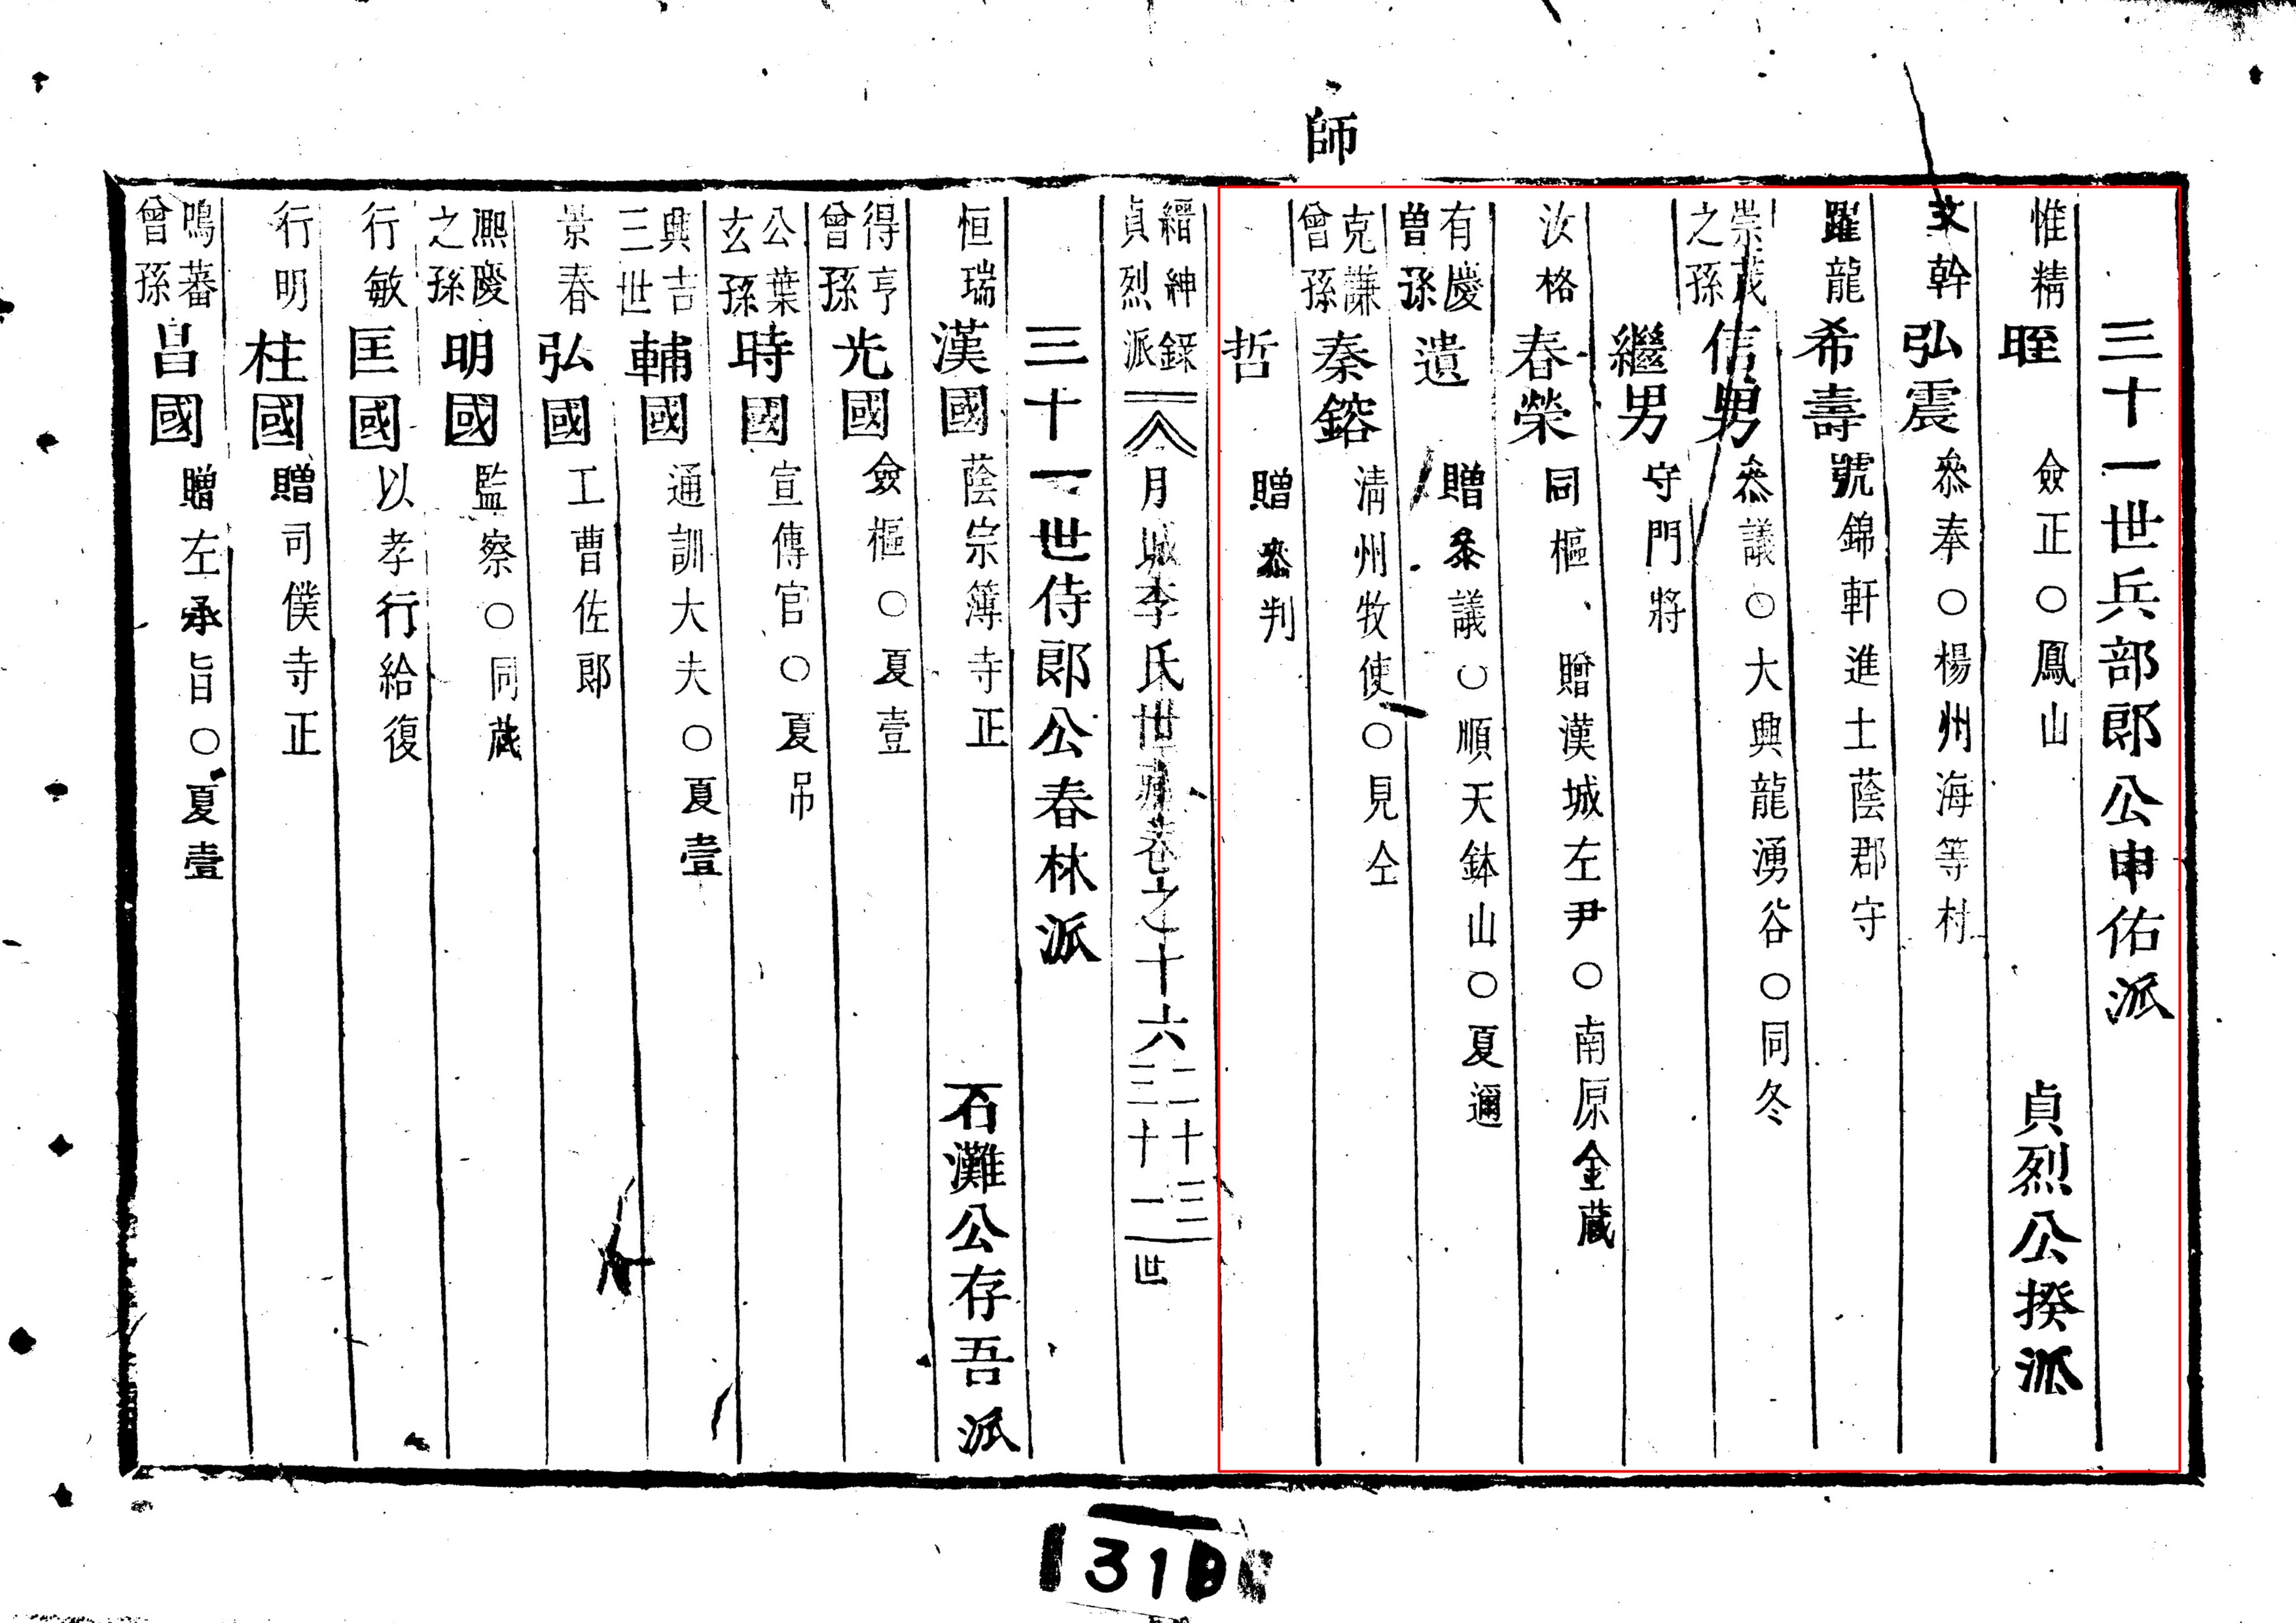 師
三十一世兵部郎公申佑派
惟精 晊 僉正○鳳山 貞烈公揆派
文幹 弘震 叅奉○楊州海等村
躍龍 希壽 號錦軒進士蔭郡守
崇茂之孫 信男 叅議○大興龍湧谷○同冬
繼男 守門將
汝格 春榮 同樞、贈漢城左尹○南原金蔵
有慶曽孫 遺 贈叅議○順天鉢山○夏邇
克謙曾孫 秦鎔 淸州牧使○見仝
哲 贈叅判
縉紳録貞烈派 月城李氏世譜卷之十六 二十三 三十一世
三十一世侍郎公春林派
恒瑞 漢國 蔭宗簿寺正 石灘公存吾派
得亨曾孫 光國 僉樞○夏壹
公葉玄孫 時國 宣傳官○夏吊
興吉三世 輔國 通訓大夫○夏壹
景春 弘國 工曹佐郎
凞慶之孫 明國 監察○同蔵
行敏 匡國 以孝行給復
行明 柱國 贈司僕寺正
鳴蕃曾孫 昌國 贈左承旨○夏壹
318